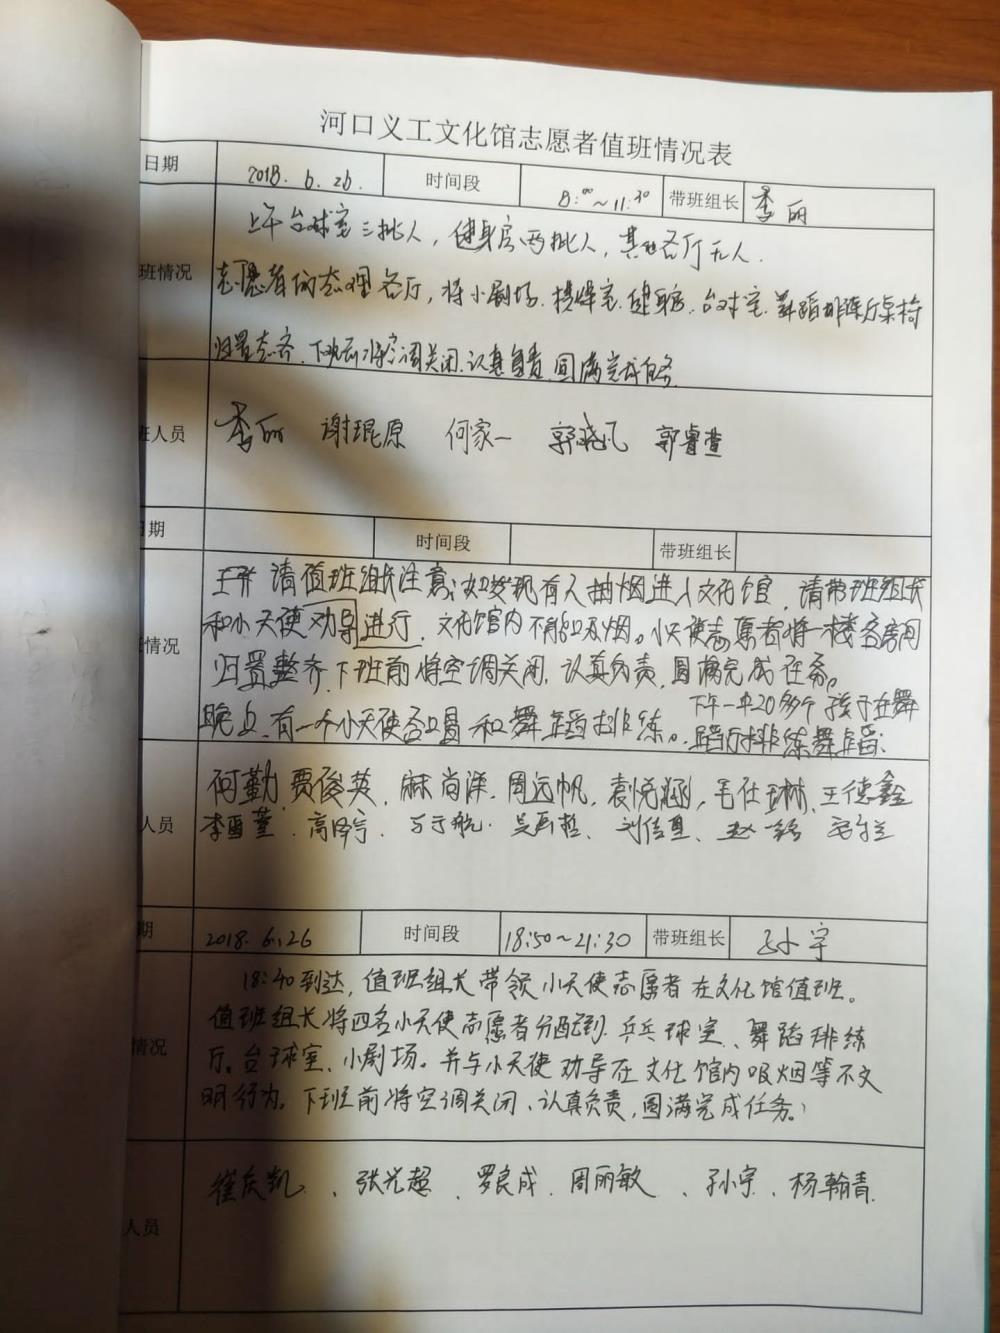 河口义工文化馆志愿者值班情况表
日期 2018.6.26. 时间段 8:00~11:30 带班组长 李丽
上午台球室三批人，健身房两批人，其他各厅无人.
班情况
志愿者们整理各厅，将小剧场.棋牌室.健身房.台球室.舞蹈排练厅桌椅
归置整齐.下班前将空调关闭.认真负责.圆满完成任务.
班人员 李丽 谢琨原 何家一 郭晓凡 郭睿萱
日期 时间段 带班组长
请值班组长注意：如发现有人抽烟进入文化馆，请带班组长
和小天使劝导进行，文化馆内不能吸烟。小天使志愿者将一楼各房间
情况 归置整齐.下班前将空调关闭，认真负责，圆满完成任务。
晚上有一个小天使 和舞蹈排练。
下午 20多个孩子在舞
蹈厅排练舞蹈.
何勤 贾俊英. 麻尚泽. 周远帆. 袁悦涵. 毛仕琳. 王德鑫
人员 李雨堇. 高 宇. 万于航. 吴 哲、刘信 、赵一
期 2018.6.26 时间段 18:50~21:30 带班组长 孙宇
18:40到达，值班组长带领小天使志愿者在文化馆值班。
值班组长将四名小天使志愿者分配到乒乓球室、舞蹈排练
情况 厅。台球室、小剧场。并与小天使劝导在文化馆内吸烟等不文
明行为。下班前将空调关闭、认真负责，圆满完成任务。
崔庆凯、张光超、罗良成.周丽敏、孙宇、杨翰青.
人员